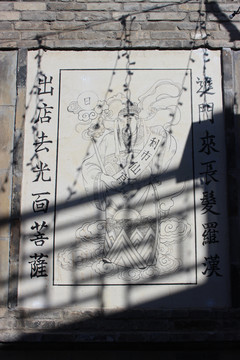 進門來長髮羅漢
出店去光面菩薩
日
利市仙